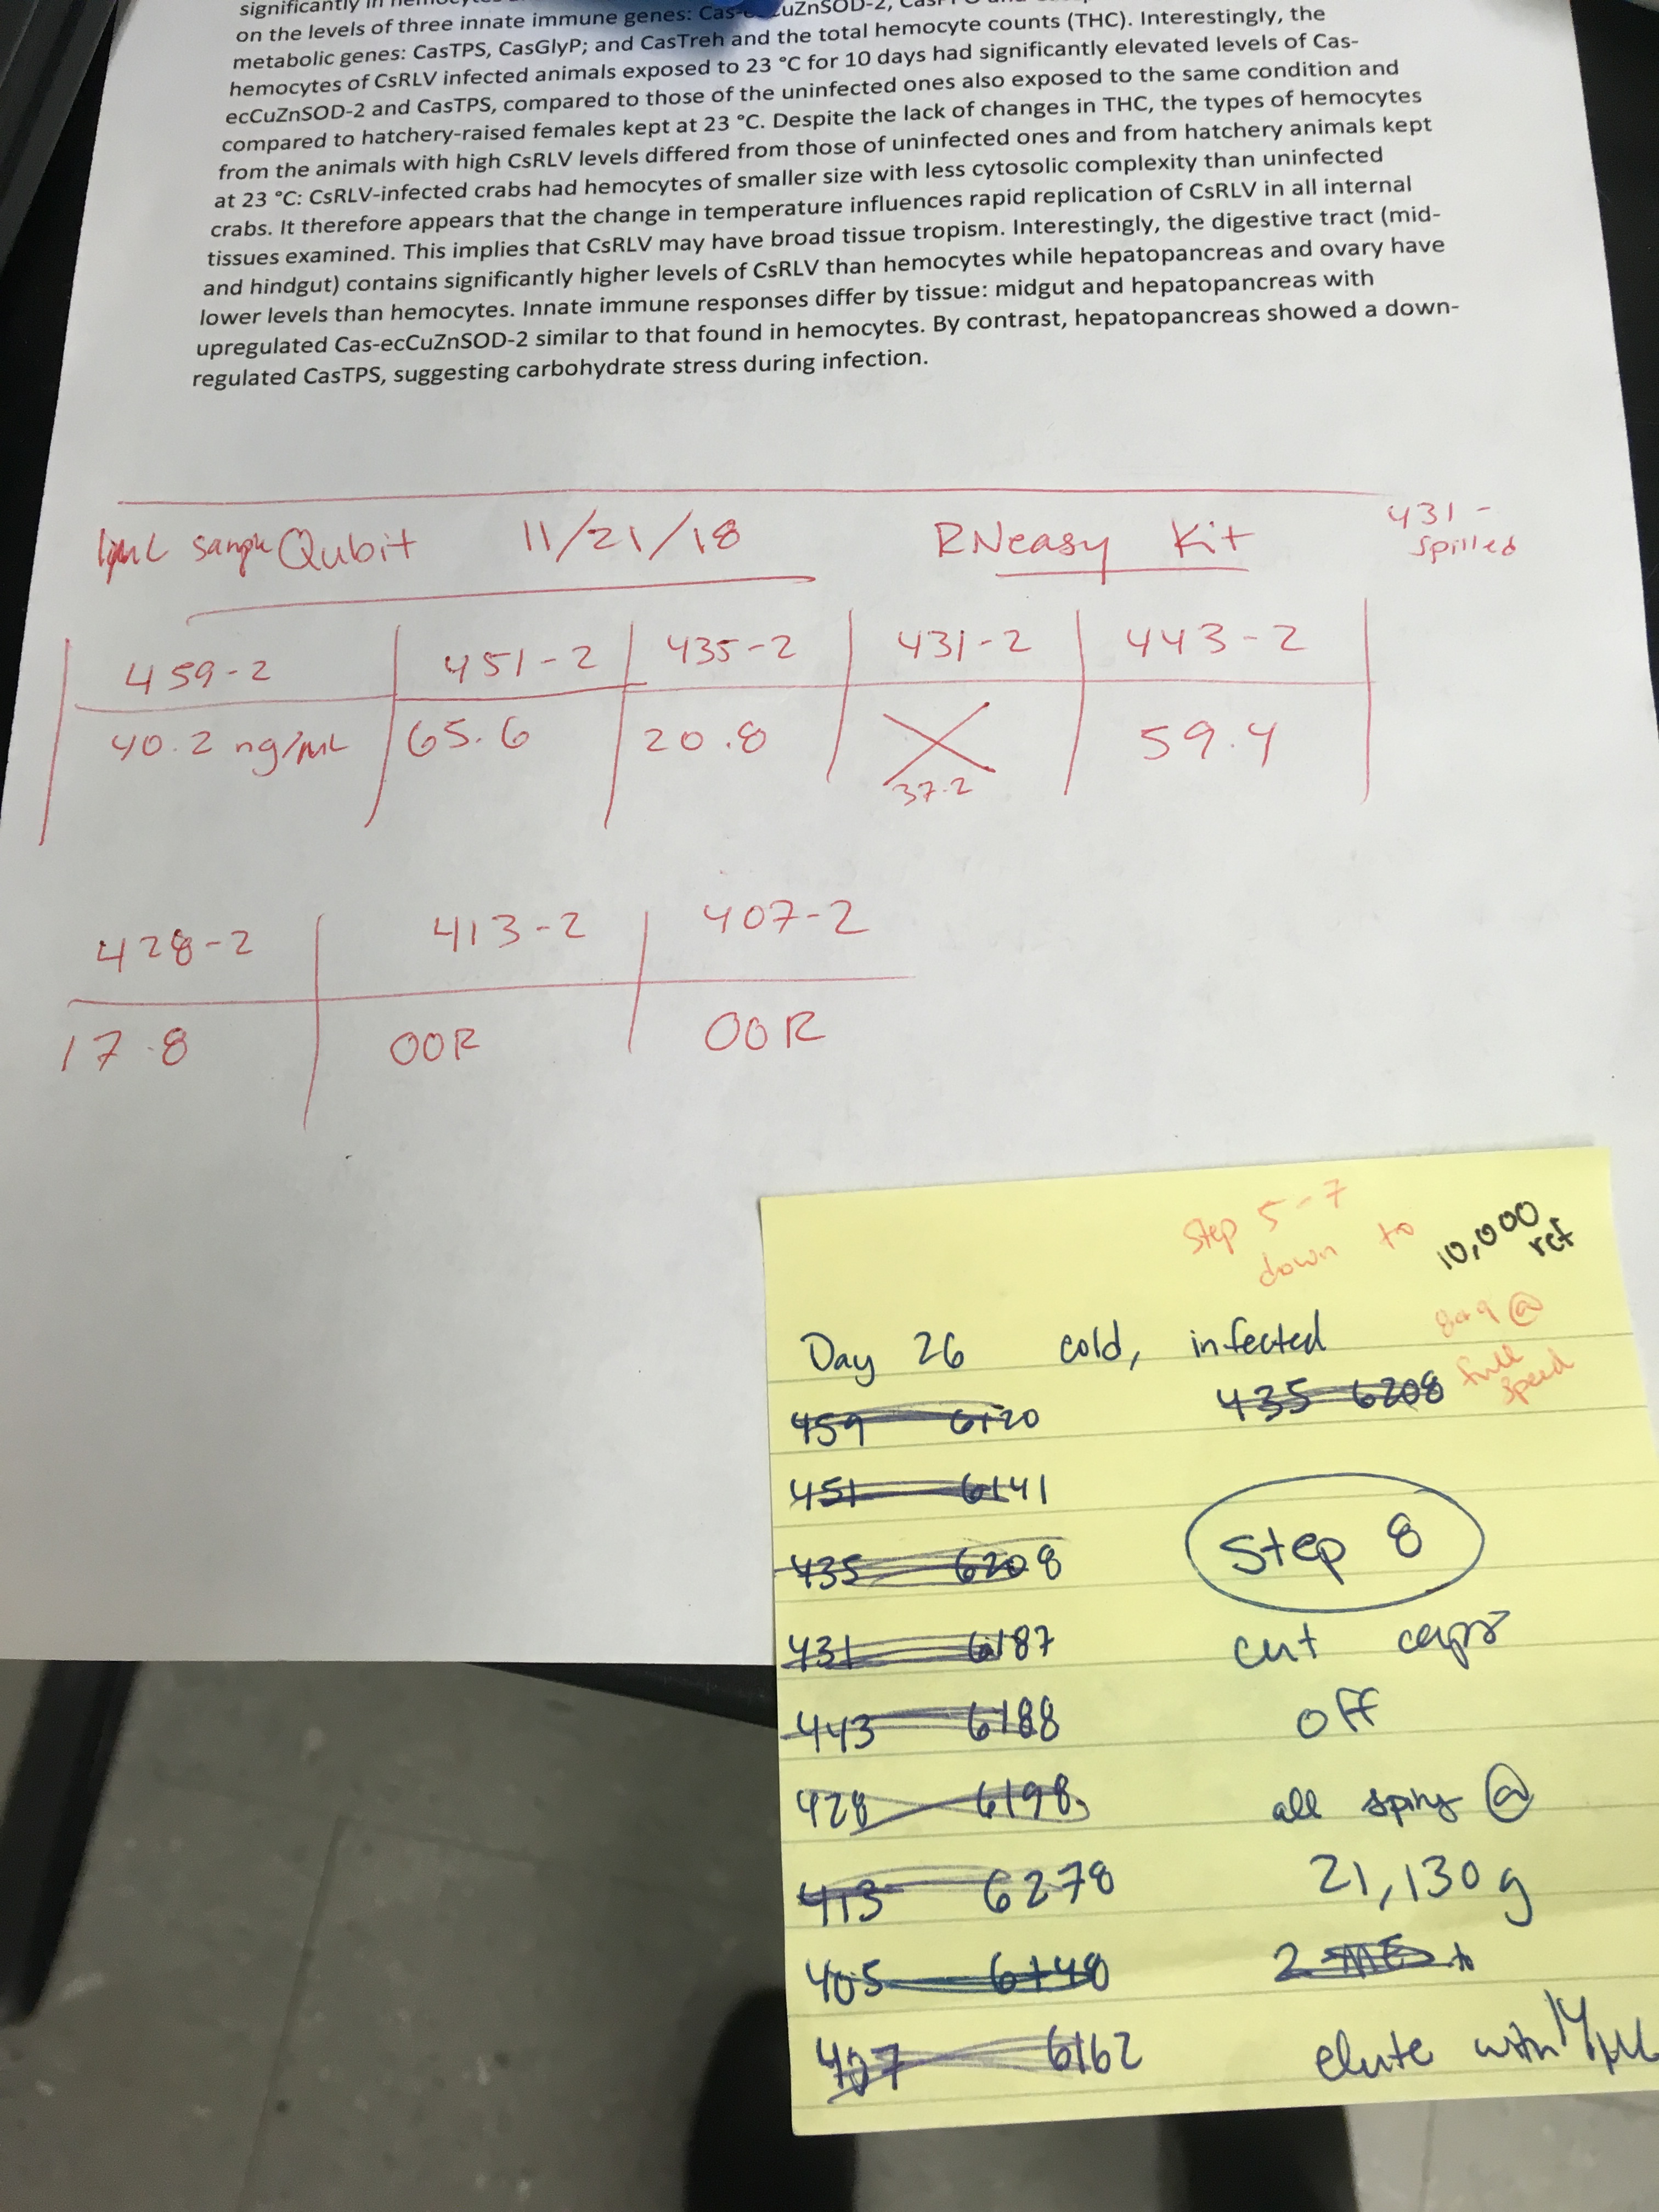 significantly in
on the levels of three innate immune genes: Cas-
metabolic genes: CasTPS, CasGlyP; and CasTreh and the total hemocyte counts (THC). Interestingly, the
hemocytes of CsRLV infected animals exposed to 23 °C for 10 days had significantly elevated levels of Cas-
ecCuZnSOD-2 and CasTPS, compared to those of the uninfected ones also exposed to the same condition and
compared to hatchery-raised females kept at 23 °C. Despite the lack of changes in THC, the types of hemocytes
from the animals with high CsRLV levels differed from those of uninfected ones and from hatchery animals kept
at 23 °C: CsRLV-infected crabs had hemocytes of smaller size with less cytosolic complexity than uninfected
crabs. It therefore appears that the change in temperature influences rapid replication of CsRLV in all internal
tissues examined. This implies that CsRLV may have broad tissue tropism. Interestingly, the digestive tract (mid-
and hindgut) contains significantly higher levels of CsRLV than hemocytes while hepatopancreas and ovary have
lower levels than hemocytes. Innate immune responses differ by tissue: midgut and hepatopancreas with
upregulated Cas-ecCuZnSOD-2 similar to that found in hemocytes. By contrast, hepatopancreas showed a down-
regulated CasTPS, suggesting carbohydrate stress during infection.
sample Qubit 11/21/18 RNeasy Kit 431 -
spilled
459-2 451-2 435-2 431-2 443-2
40.2 ng/mL 65.6 20.8 37.2 59.4
428-2 413-2 407-2
17.8 OOR OOR
Step 5-7
down to 10,000
rcf
8+9 @
full
speed
Day 26 cold, infected
459 6120 435 6208
451 6141
435 6208
Step 8
431 6187 cut caps
443 6188 off
428 6198 all spins @
413 6278 21,130 g
405 6148 2 to
407 6162 elute with 14 µL